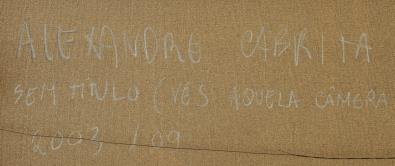 ALEXANDRE CABRITA
SEM TÍTULO (VÊS AQUELA CÂMERA
2003 / 09